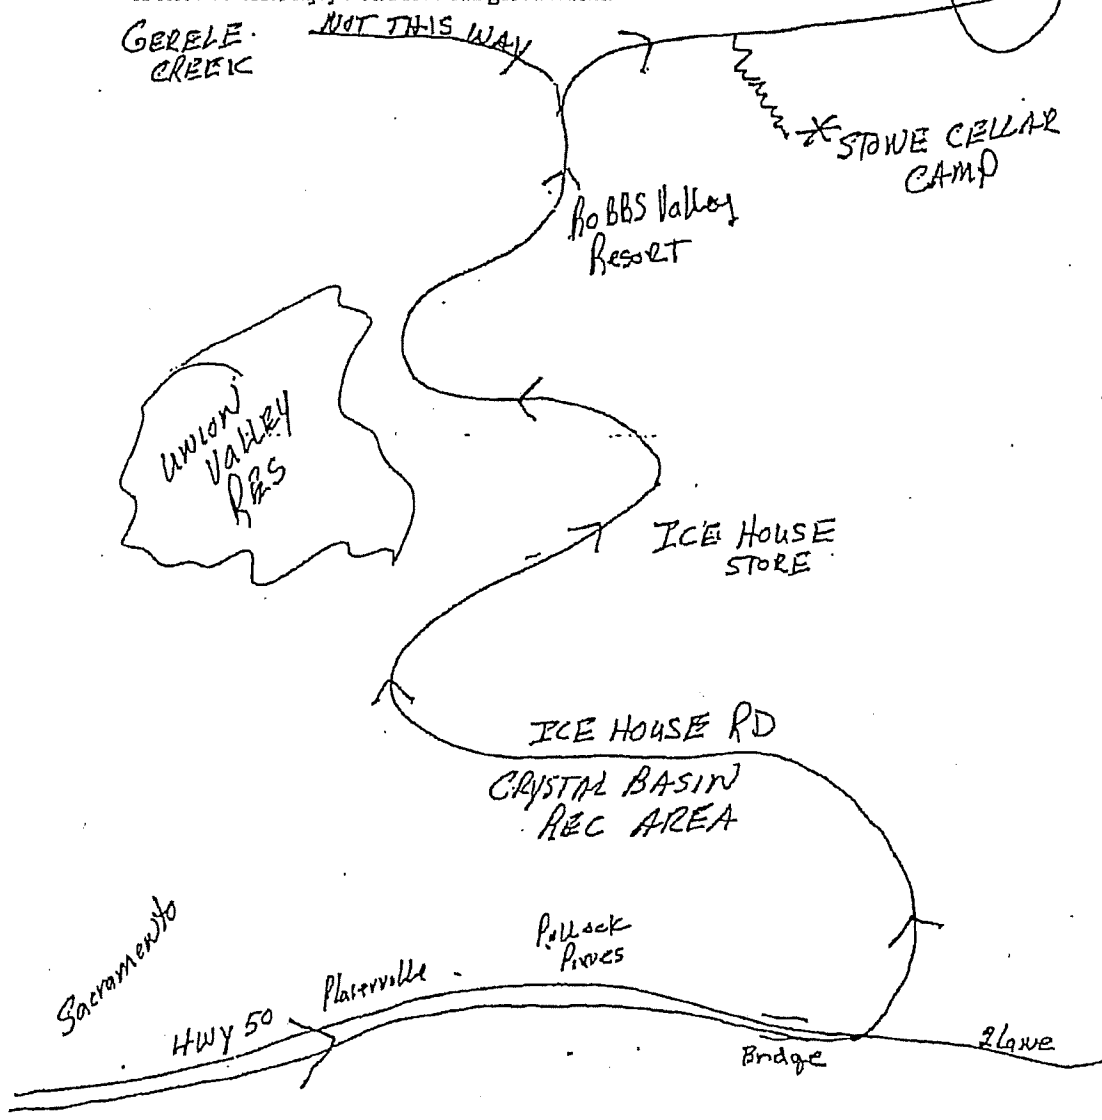 GERELE.
CREEK
NOT THIS WAY
STONE CELLAR
CAMP
ROBBS Valley
Resort
UNION
VALLEY
RES
ICE HOUSE
STORE
ICE HOUSE RD
CRYSTAL BASIN
REC AREA
Sacramento
HWY 50
Placerville
Pollock
Pines
Bridge
2 Lane